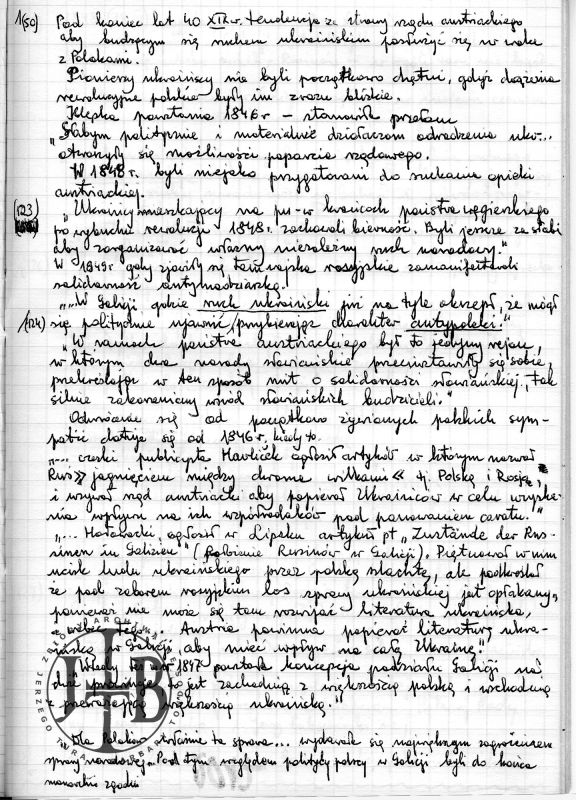 1(50) Pod koniec lat 40 XIX w. tendencja ze strony rządu austriackiego
aby budzącym się ruchem ukraińskim posłużyć się w walce
z Polakami.
Pionierzy ukraińscy nie byli początkowo chętni, gdyż dążenia
rewolucyjne polskie były im zrazu bliskie.
Klęska powstania 1846 r – stanowiła przełom
"Słabym politycznie i materialnie działaczom odrodzenia ukr...
otworzyły się możliwości poparcia rządowego.
W 1848 r. byli niejako przygotowani do szukania opieki
austriackiej.
(123) "Ukraińcy mieszkający na pn-w krańcach państwa węgierskiego
po wybuchu rewolucji 1848 r. zachowali bierność. Byli jeszcze za słabi
aby zorganizować własny niezależny ruch narodowy."
W 1849 r gdy zjawiły się tam wojska rosyjskie zamanifestowali
solidarność antymadziarską.
"W Galicji gdzie ruch ukraiński już na tyle okrzepł, że mógł
/124) się politycznie ujawnić/przybierając charakter antypolski."
"W ramach państwa austriackiego był to jedyny rejon,
w którym dwa narody słowiańskie przeciwstawiły się sobie,
przekreślając w ten sposób mit o solidarności słowiańskiej, tak
silnie zakorzeniony wśród słowiańskich budzicieli."
Odwrócenie się od początkowo żywionych polskich sym-
patii datuje się od 1846 r. kiedy to.
"... czeski publicysta Havliček ogłosił artykuł w którym nazwał
Ruś » jagnięciem między dwoma wilkami « tj. Polską i Rosją,
i wzywał rząd austriacki aby popierał Ukraińców w celu uzyska-
nia wpływu na ich współrodaków pod panowaniem caratu."
"... Hołowacki, ogłosił w Lipsku artykuł pt "Zustände der Rus-
sinen in Galizien" (Położenie Rusinów w Galicji). Piętnował w nim
ucisk ludu ukraińskiego przez polską szlachtę, ale podkreślał
że pod zaborem rosyjskim los sprawy ukraińskiej jest opłakany,
ponieważ nie może się tam rozwijać literatura ukraińska,
a wobec tego Austria powinna popierać literaturę ukra-
ińską w Galicji aby mieć wpływ na całą Ukrainę."
"Wtedy też w 1847 powstała koncepcja podziału Galicji na
dwie prowincje, to jest zachodnią z większością polską i wschodnią
z przeważającą większością ukraińską."
Dla Polaków właśnie ta sprawa... wydawała się największym zagrożeniem
sprawy narodowej. Pod tym względem politycy polscy w Galicji byli do końca
monarchii zgodni
JHB